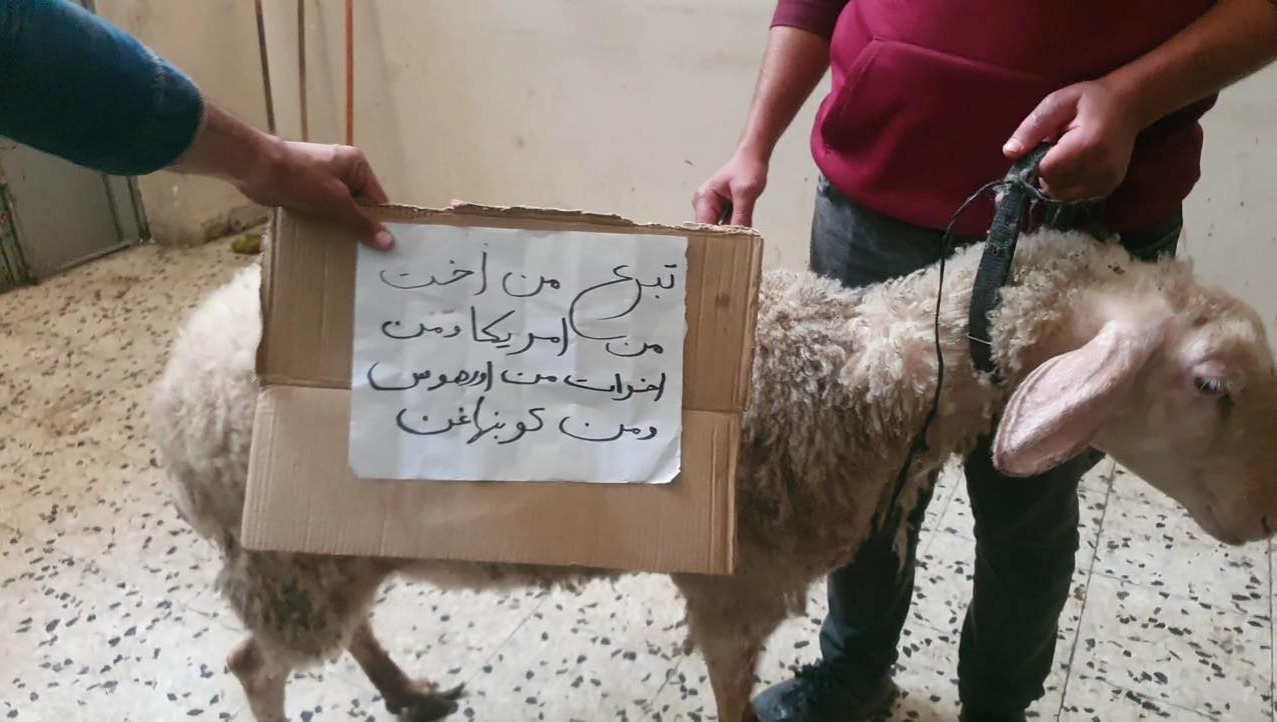 تبرع من أخت
من امريكا ومن
اخوات من اورهوس
ومن كوبنهاغن